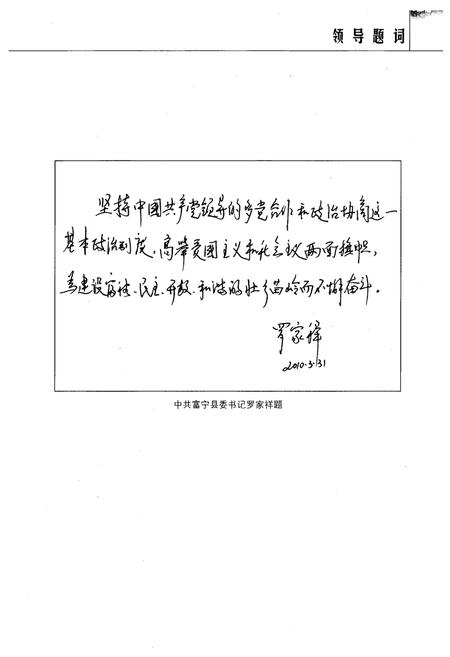 领导题词
坚持中国共产党领导的多党合作和政治协商这一
基本政治制度,高举爱国主义和社会主义两面旗帜,
为建设富裕、民主、开放、和谐的壮乡苗岭而不懈奋斗。
罗家祥
2010.3.31
中共富宁县委书记罗家祥题